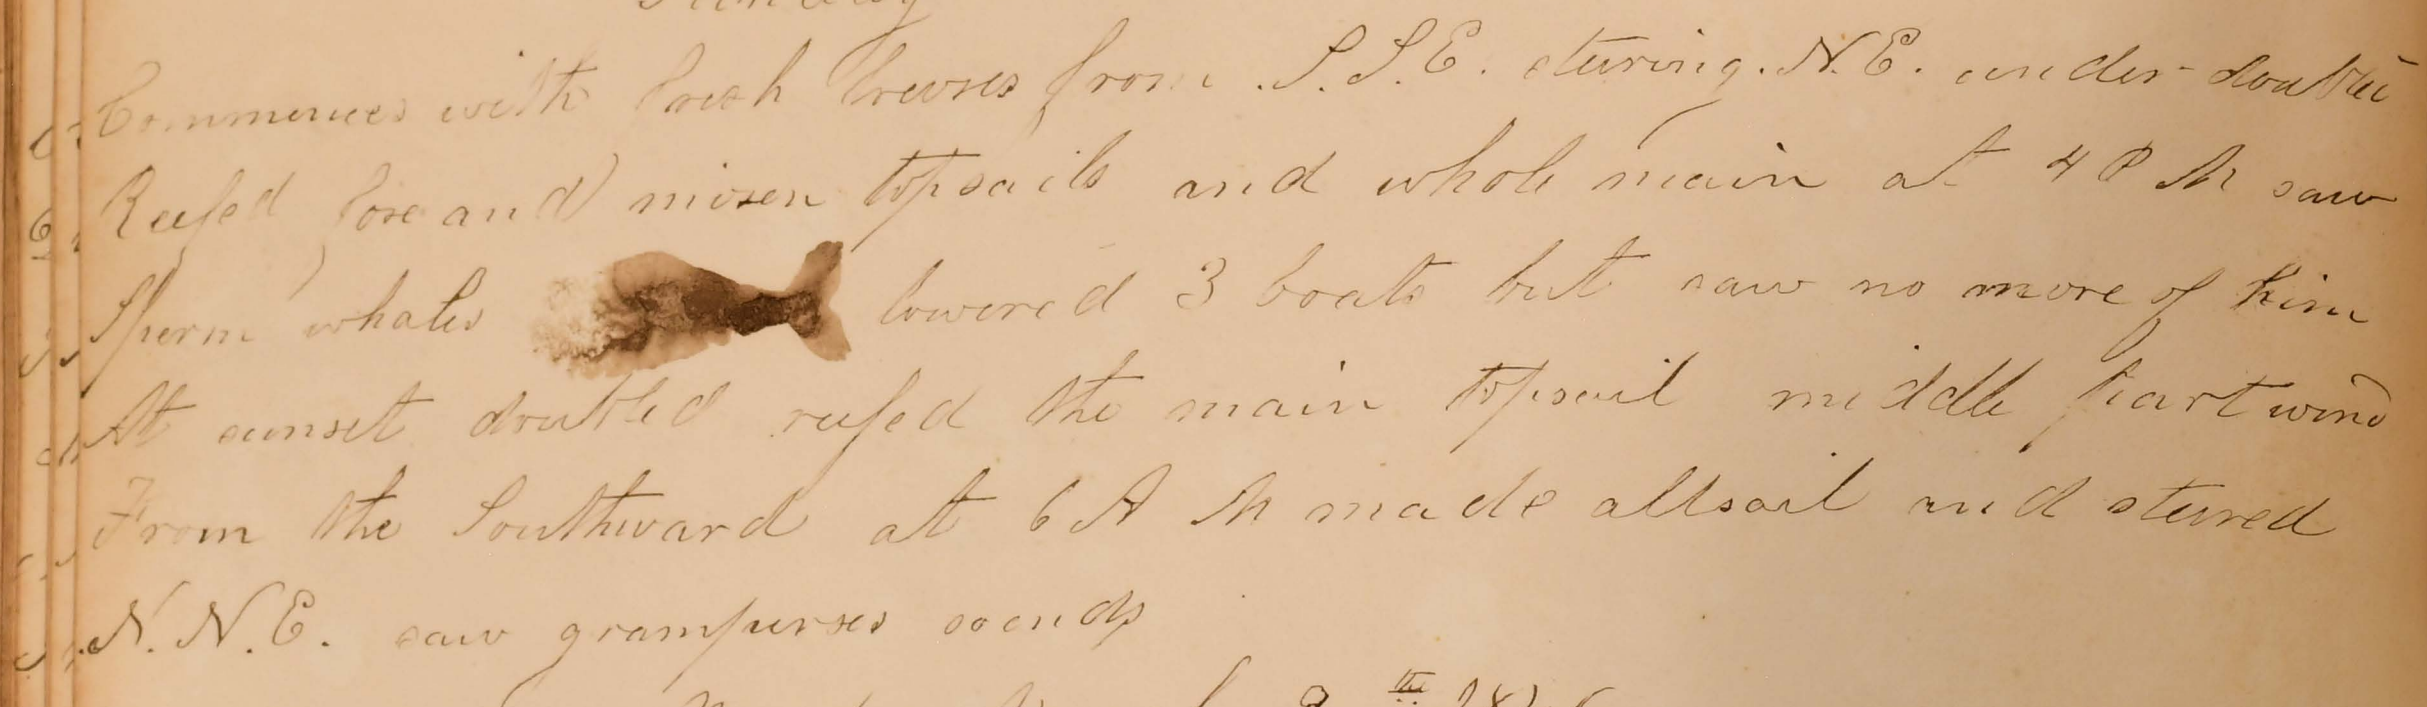 Sunday
Commences with fresh breases from S.S.E. stering. N.E. under doubled
Reefed fore and mizen topsails and whole main at 4 P M saw
Sperm whales lowered 3 boats but saw no more of him
At sunset doubled reefed the main topsail middle part wind
From the Southward at 6 A M made all sail and steered
N.N.E. saw grampurses so ends